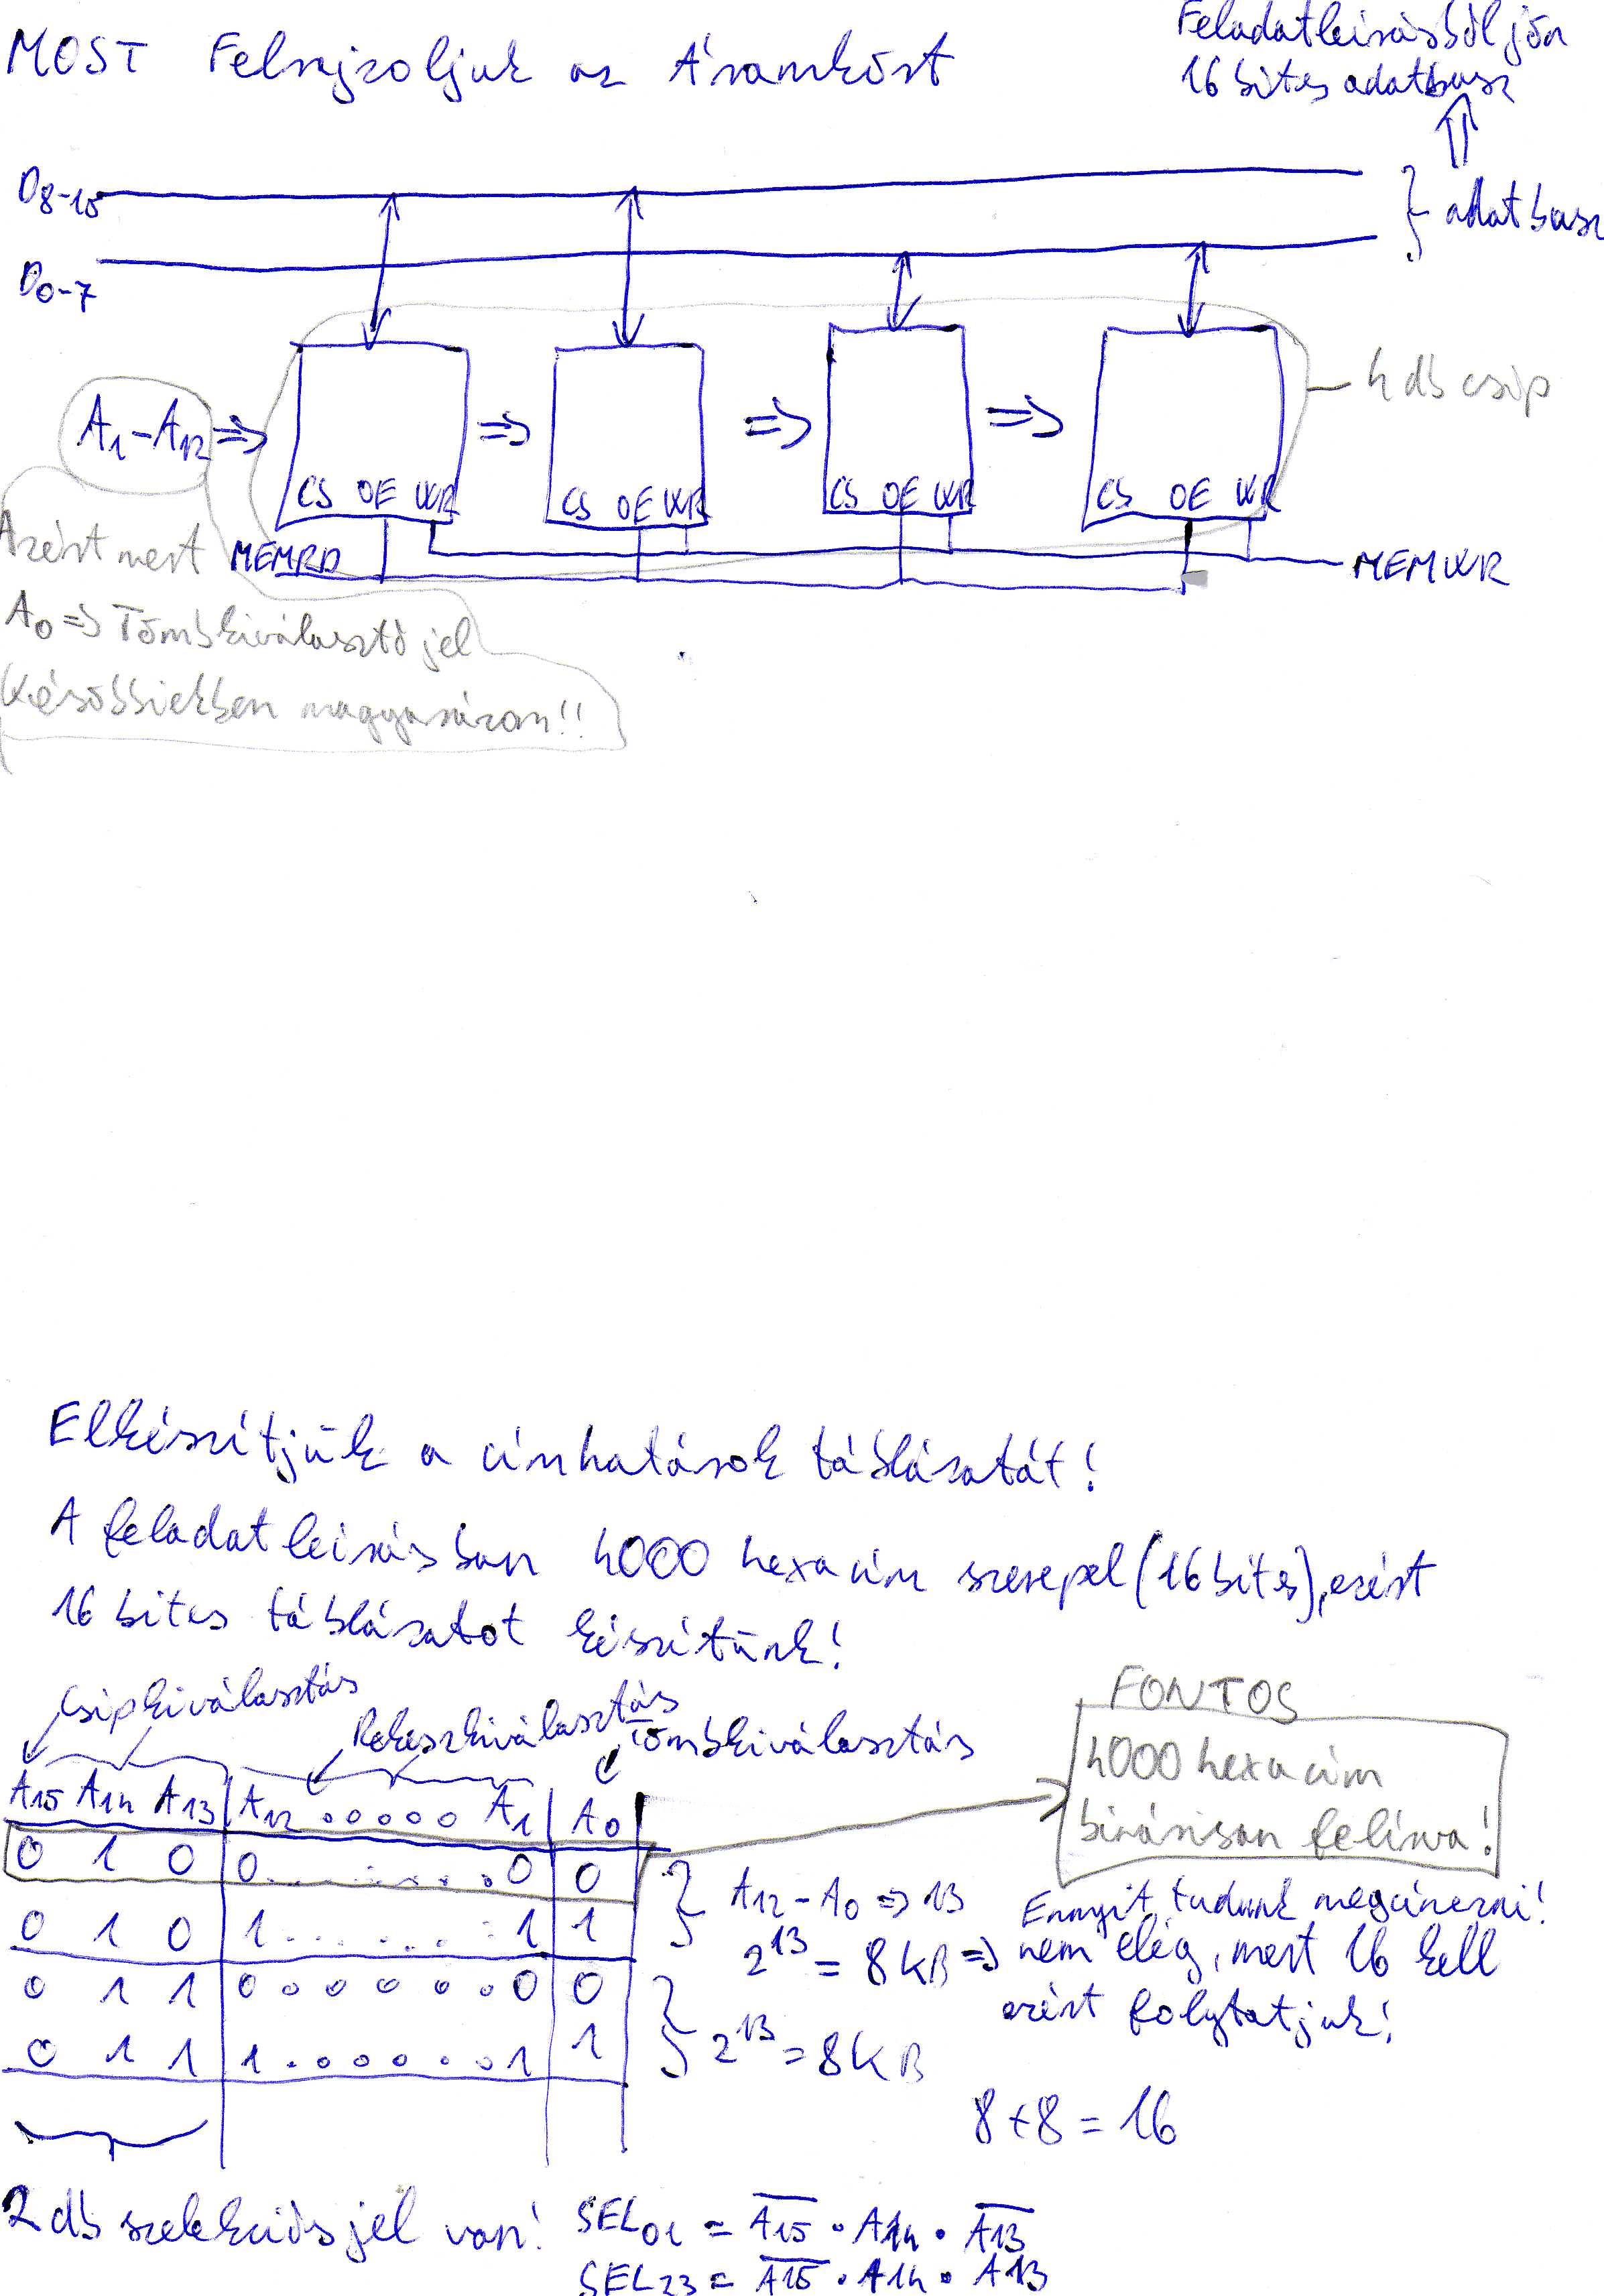 MOST Felrajzoljuk az Áramkört
Feladatleírásból jön
16 bites adatbusz
D8-15
adatbusz
D0-7
4 db csip
A1-A12 ⇒ ⇒ ⇒ ⇒
CS OE WR CS OE WR CS OE WR CS OE WR
Azért mert
MEMRD
MEMWR
A0 ⇒ Tömbkiválasztó jel
Későbbiekben magyarázom!!
Elkészítjük a címhatárok táblázatát!
A feladatleírásban 4000 hexa cím szerepel (16 bites), ezért
16 bites táblázatot készítünk!
Csipkiválasztás
Rekeszkiválasztás
Tömbkiválasztás
FONTOS
4000 hexa cím
binárisan felírva!
A15 A14 A13 A12 ..... A1 A0
0 1 0 0........0 0
0 1 0 1........1 1
A12-A0 ⇒ 13
2^13 = 8KB ⇒
Ennyit tudunk megcímezni!
nem elég, mert 16 kell
ezért folytatjuk!
0 1 1 0......0 0
0 1 1 1......1 1
2^13 = 8KB
8+8=16
2 db szelekciós jel van!
SEL01 = A̅1̅5̅ · A14 · A̅1̅3̅
SEL23 = A̅1̅5̅ · A14 · A13